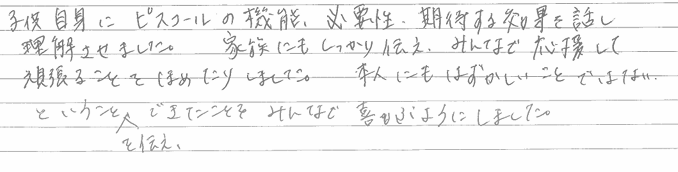 子供自身にピスコールの機能、必要性、期待する効果を話し
理解させました。 家族にもしっかり伝え、みんなで応援して
頑張ることをほめたりしました。 本人にもはずかしいことではない、
ということ、できたことをみんなで喜もぶようにしました。
を伝え、